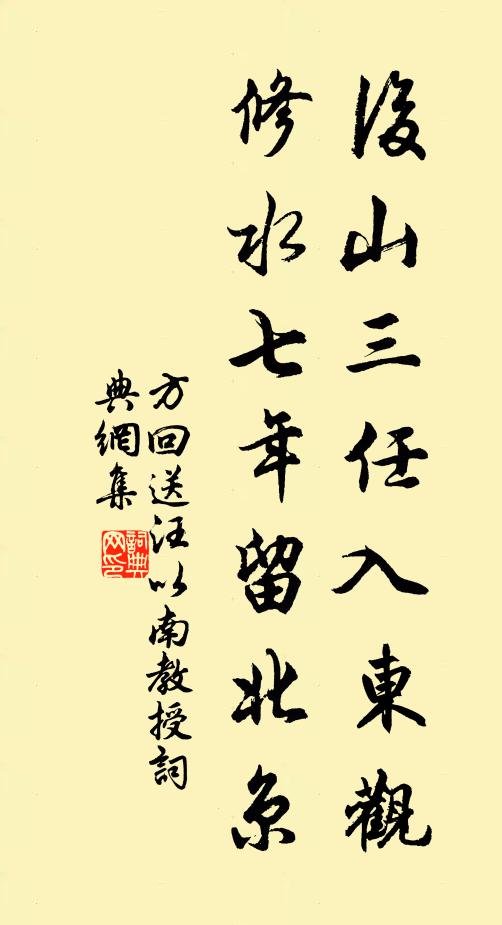 後山三任入東觀
修水七年留北京
方回送汪以南教授詞
典網集
詞典
网印